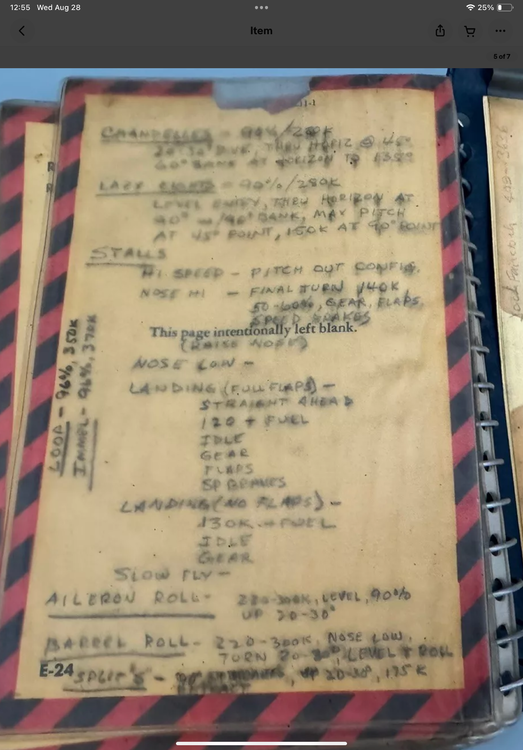 12:55 Wed Aug 28
25%
Item
5 of 7
11-1
CHANDELLES = 94%/280K
20-30° DIVE, THRU HORIZ @ 45°
60° BANK AT HORIZON TO
LAZY EIGHTS = 90%/280K
LEVEL ENTRY, THRU HORIZON AT
90° BANK, MAX PITCH
AT 45° POINT, 150K AT 90° POINT
STALLS
HI SPEED - PITCH OUT CONFIG.
NOSE HI - FINAL TURN 140K
50-60%, GEAR, FLAPS,
SPEED BRAKES
This page intentionally left blank.
(RAISE NOSE)
NOSE LOW -
LANDING (FULL FLAPS) -
STRAIGHT AHEAD
120 + FUEL
IDLE
GEAR
FLAPS
SP BRAKES
LANDING (NO FLAPS) -
130K + FUEL
IDLE
GEAR
SLOW FLY -
AILERON ROLL - 220-300K, LEVEL, 90%
UP 20-30°
BARREL ROLL - 220-300K, NOSE LOW,
TURN 20-30°, LEVEL & ROLL
E-24
SPLIT "S" - UP 20-30°, 175K
LOOP - 96%, 350K
IMMEL - 96%, 370K